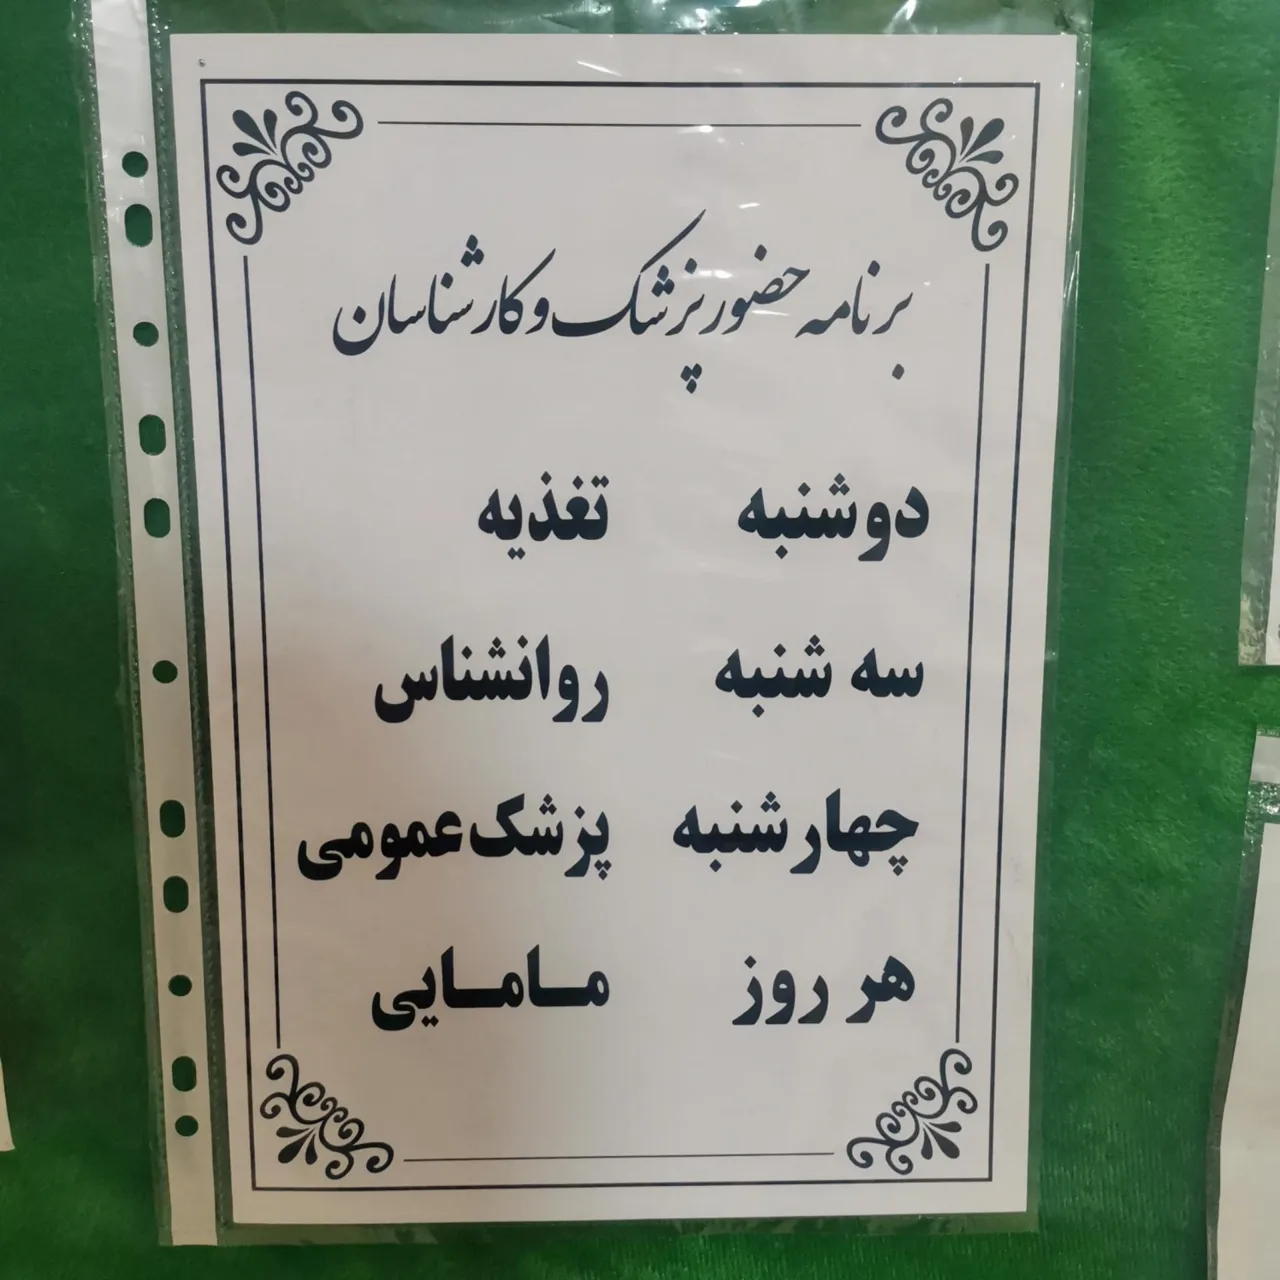 برنامه حضور پزشک و کارشناسان
دوشنبه تغذیه
سه شنبه روانشناس
چهارشنبه پزشک عمومی
هر روز مامایی